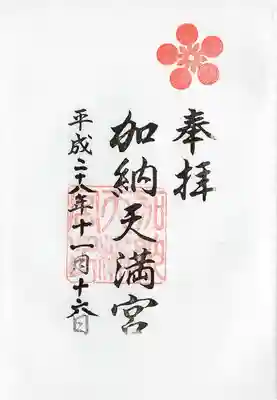 奉拝
加納天満宮
平成二十八年十一月十六日